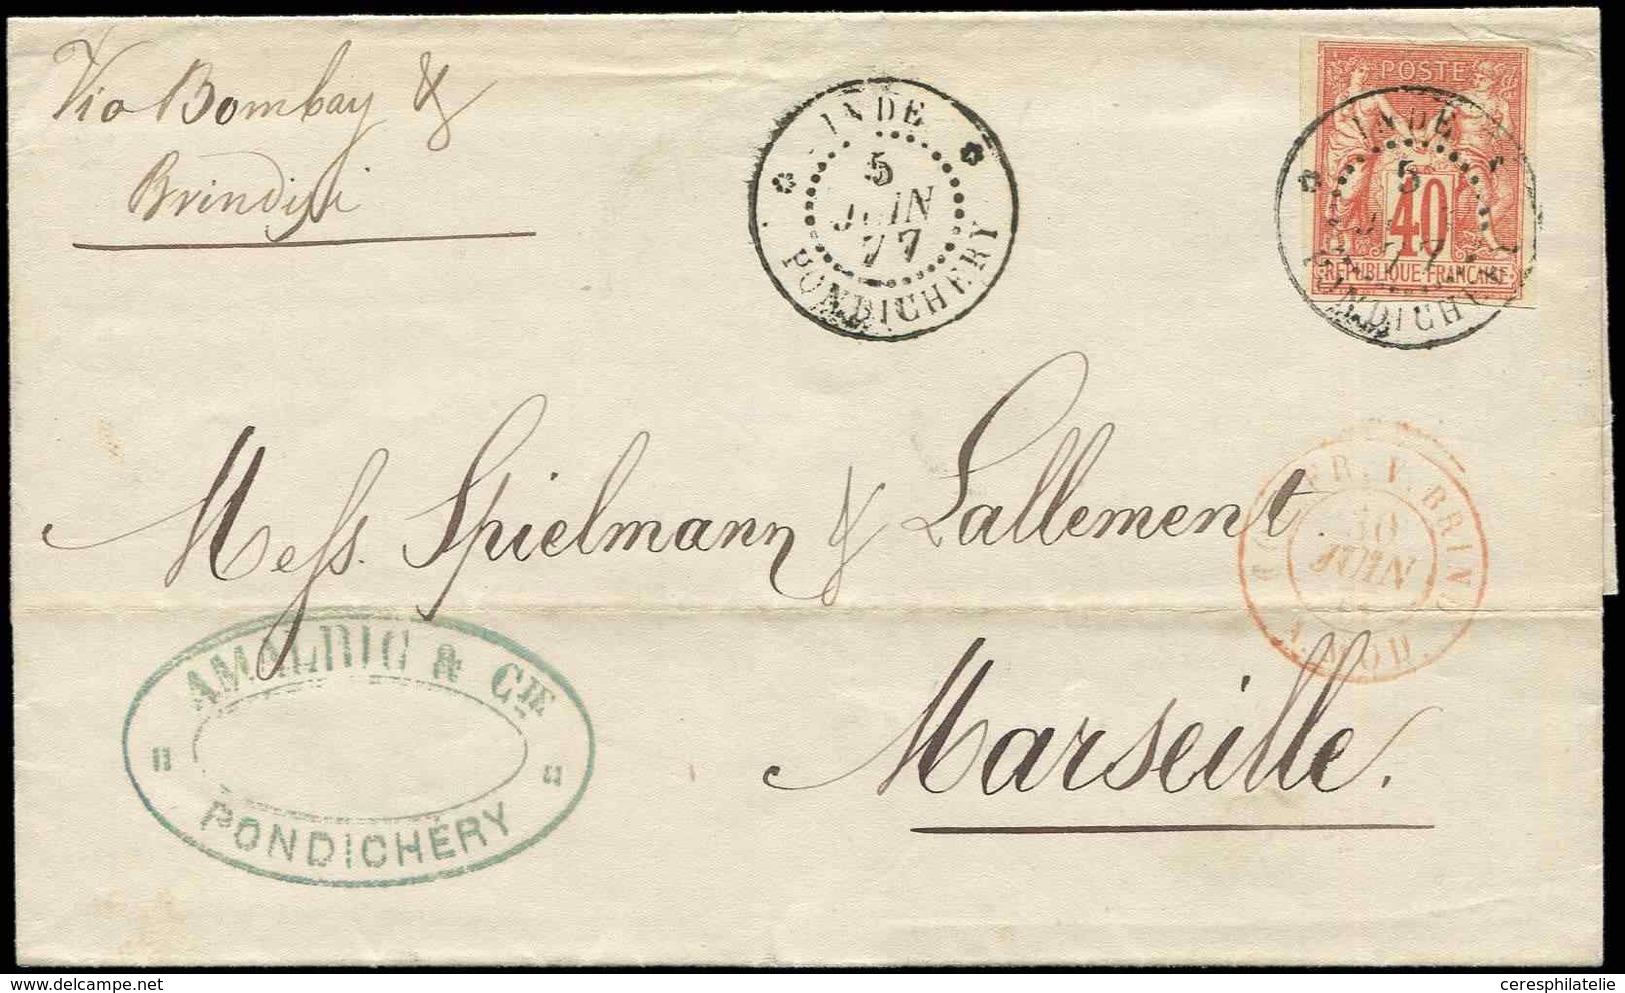 Via Bombay &
Brindisi
INDE
5
JUIN
77
PONDICHERY
POSTE
40
REPUBLIQUE FRANÇAISE
INDE
5
77
PONDICHERY
Mess. Spielmann & Lallement.
Marseille.
V. BRIND
30
JUIN
A. MOD.
AMALRIC & CIE
PONDICHÉRY
www.delcampe.net
ceresphilatelie